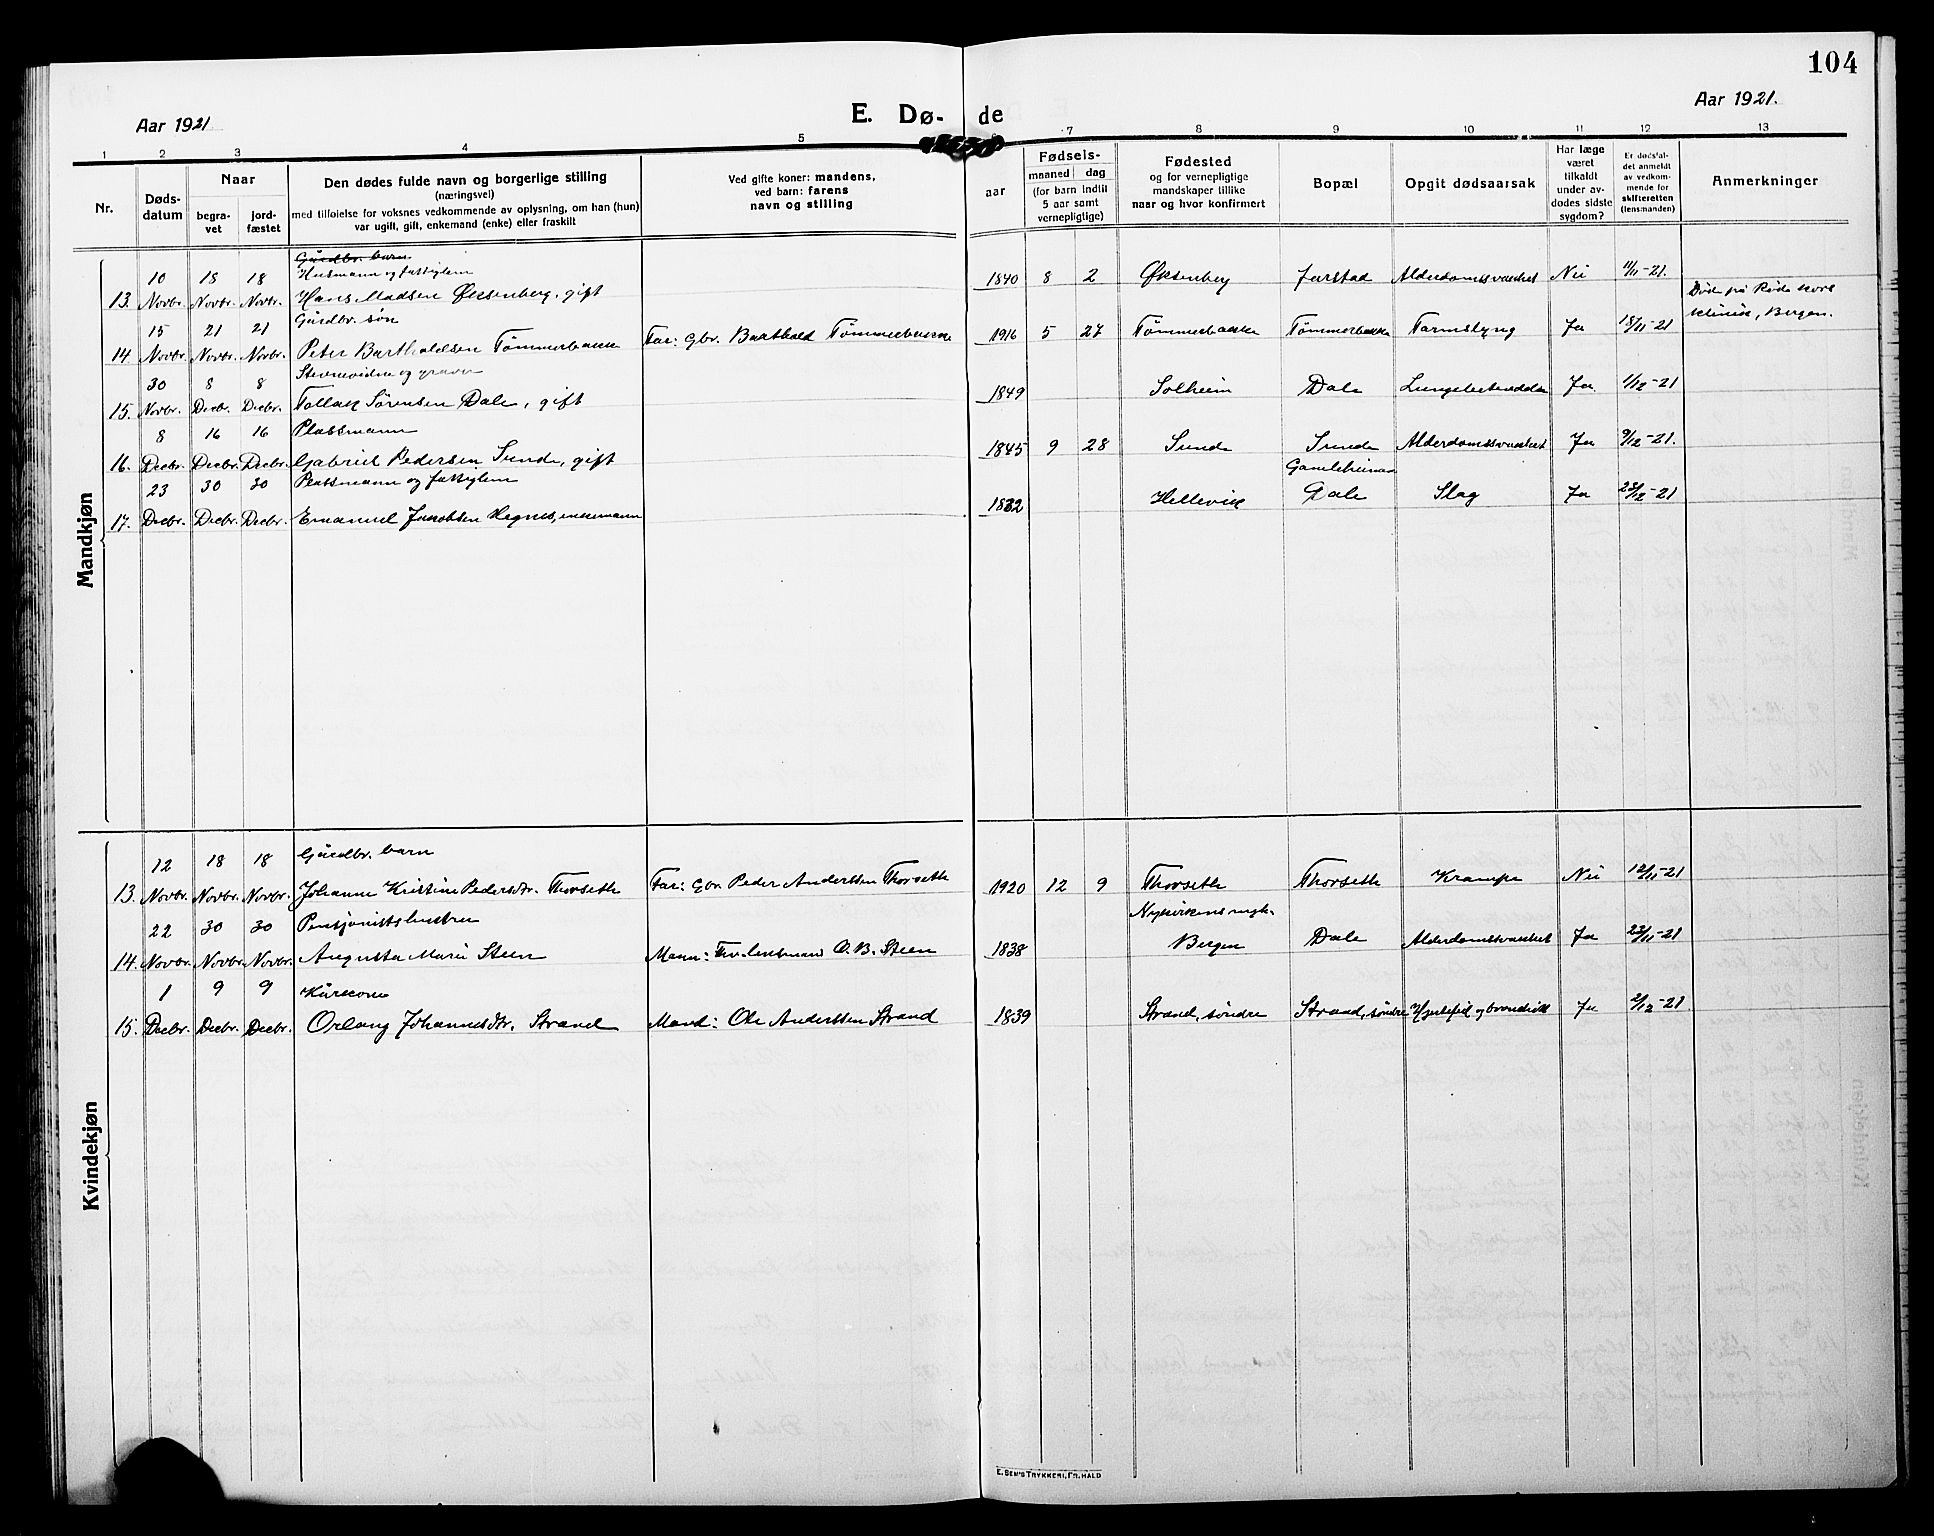 104
Aar 1921
E. Dø- de
Aar 1921.
1 2 3 4 5 7 8 9 10 11 12 13
Nr.
Døds-
datum
Naar
begra-
vet
jord-
fæstet
Den dødes fulde navn og borgerlige stilling
(næringsvei)
med tilføielse for voksnes vedkommende av oplysning, om han (hun)
var ugift, gift, enkemand (enke) eller fraskilt
Ved gifte koner: mandens,
ved barn: farens
navn og stilling
Fødsels-
aar
maaned dag
(for barn indtil
5 aar samt
vernepligtige)
Fødested
og for vernepligtige
mandskaper tillike
naar og hvor konfirmert
Bopæl
Opgit dødsaarsak
Har læge
været
tilkaldt
under av-
dødes sidste
sygdom?
Er dødsfal-
det anmeldt
av vedkom-
mende for
skifteretten
(lensmanden)
Anmerkninger
Mandkjøn
Gårdbr. barn
10 18 18 Husmann og fattiglem
13. Novbr. Novbr. Novbr. Hans Madsen Øksenberg, gift 1840 8 2 Øksenberg Jarstad Alderdomssvakhet Nei 11/11-21.
15 21 21 Gårdbr. søn
14. Novbr. Novbr. Novbr. Peter Bartholdsen Tømmerbakke Far: Gbr. Barthold Tømmerbakke 1916 5 27 Tømmerbakke Tømmerbakke Tarmslyng Ja 15/11-21 Døde på Røde kors
klinik, Bergen.
30 8 8 Stevnevidne og graver
15. Novbr. Decbr. Decbr. Tollak Sørensen Dale, gift 1849 Solheim Dale Lungebetendelse Ja 1/12-21
8 16 16 Plassmann
16. Decbr. Decbr. Decbr. Gabriel Pedersen Sunde, gift 1845 9 28 Sunde Sunde Alderdomssvakhet Ja 9/12-21.
23 30 30 Plassmann og fattiglem Gamleheimen
17. Decbr. Decbr. Decbr. Emanuel Jakobsen Hegnes, enkemann 1832 Hellevik Dale Slag Ja 23/12-21
Kvindekjøn
12 18 18 Gårdbr. barn
13. Novbr. Novbr. Novbr. Johanne Kristine Pedersdtr. Thorseth Far: Gbr. Peder Anderssen Thorseth 1920 12 9 Thorseth Thorseth Krampe Nei 12/11-21
22 30 30 Pensjonistshustru Nykirkens
14. Novbr. Novbr. Novbr. Augusta Marie Steen Mann: Fhv. lensmand O. B. Steen 1838 Bergen Dale Alderdomssvakhet Ja 22/11-21
1 9 9 Kårkone
15. Decbr. Decbr. Decbr. Orlaug Johannesdtr. Strand Mand: Ole Anderssen Strand 1839 Strand, søndre Strand, søndre Hjertefeil og Ja 2/12-21
E. SEM'S TRYKKERI, FR. HALD